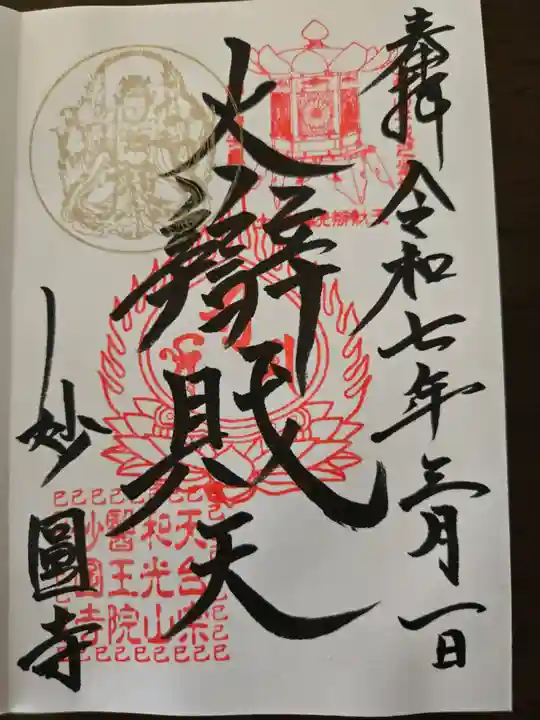 奉拜
令和七年三月一日
大辨財天
妙圓寺
天台宗
和光山
醫王院
妙圓寺